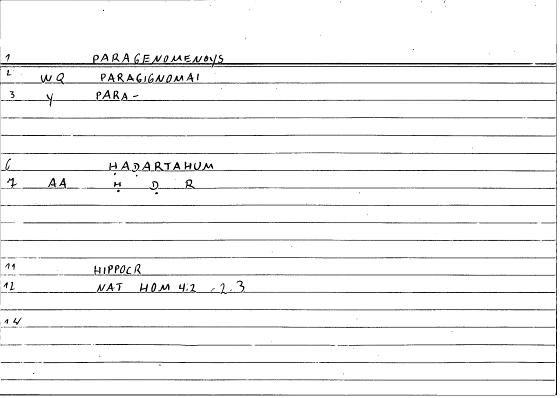 1 PARAGENOMENOYS
2 WQ PARAGIGNOMAI
3 y PARA-
6 ḤAḌARTAHUM
7 AA Ḥ Ḍ R
11 HIPPOCR
12 NAT HOM 4.2 -2.3
14